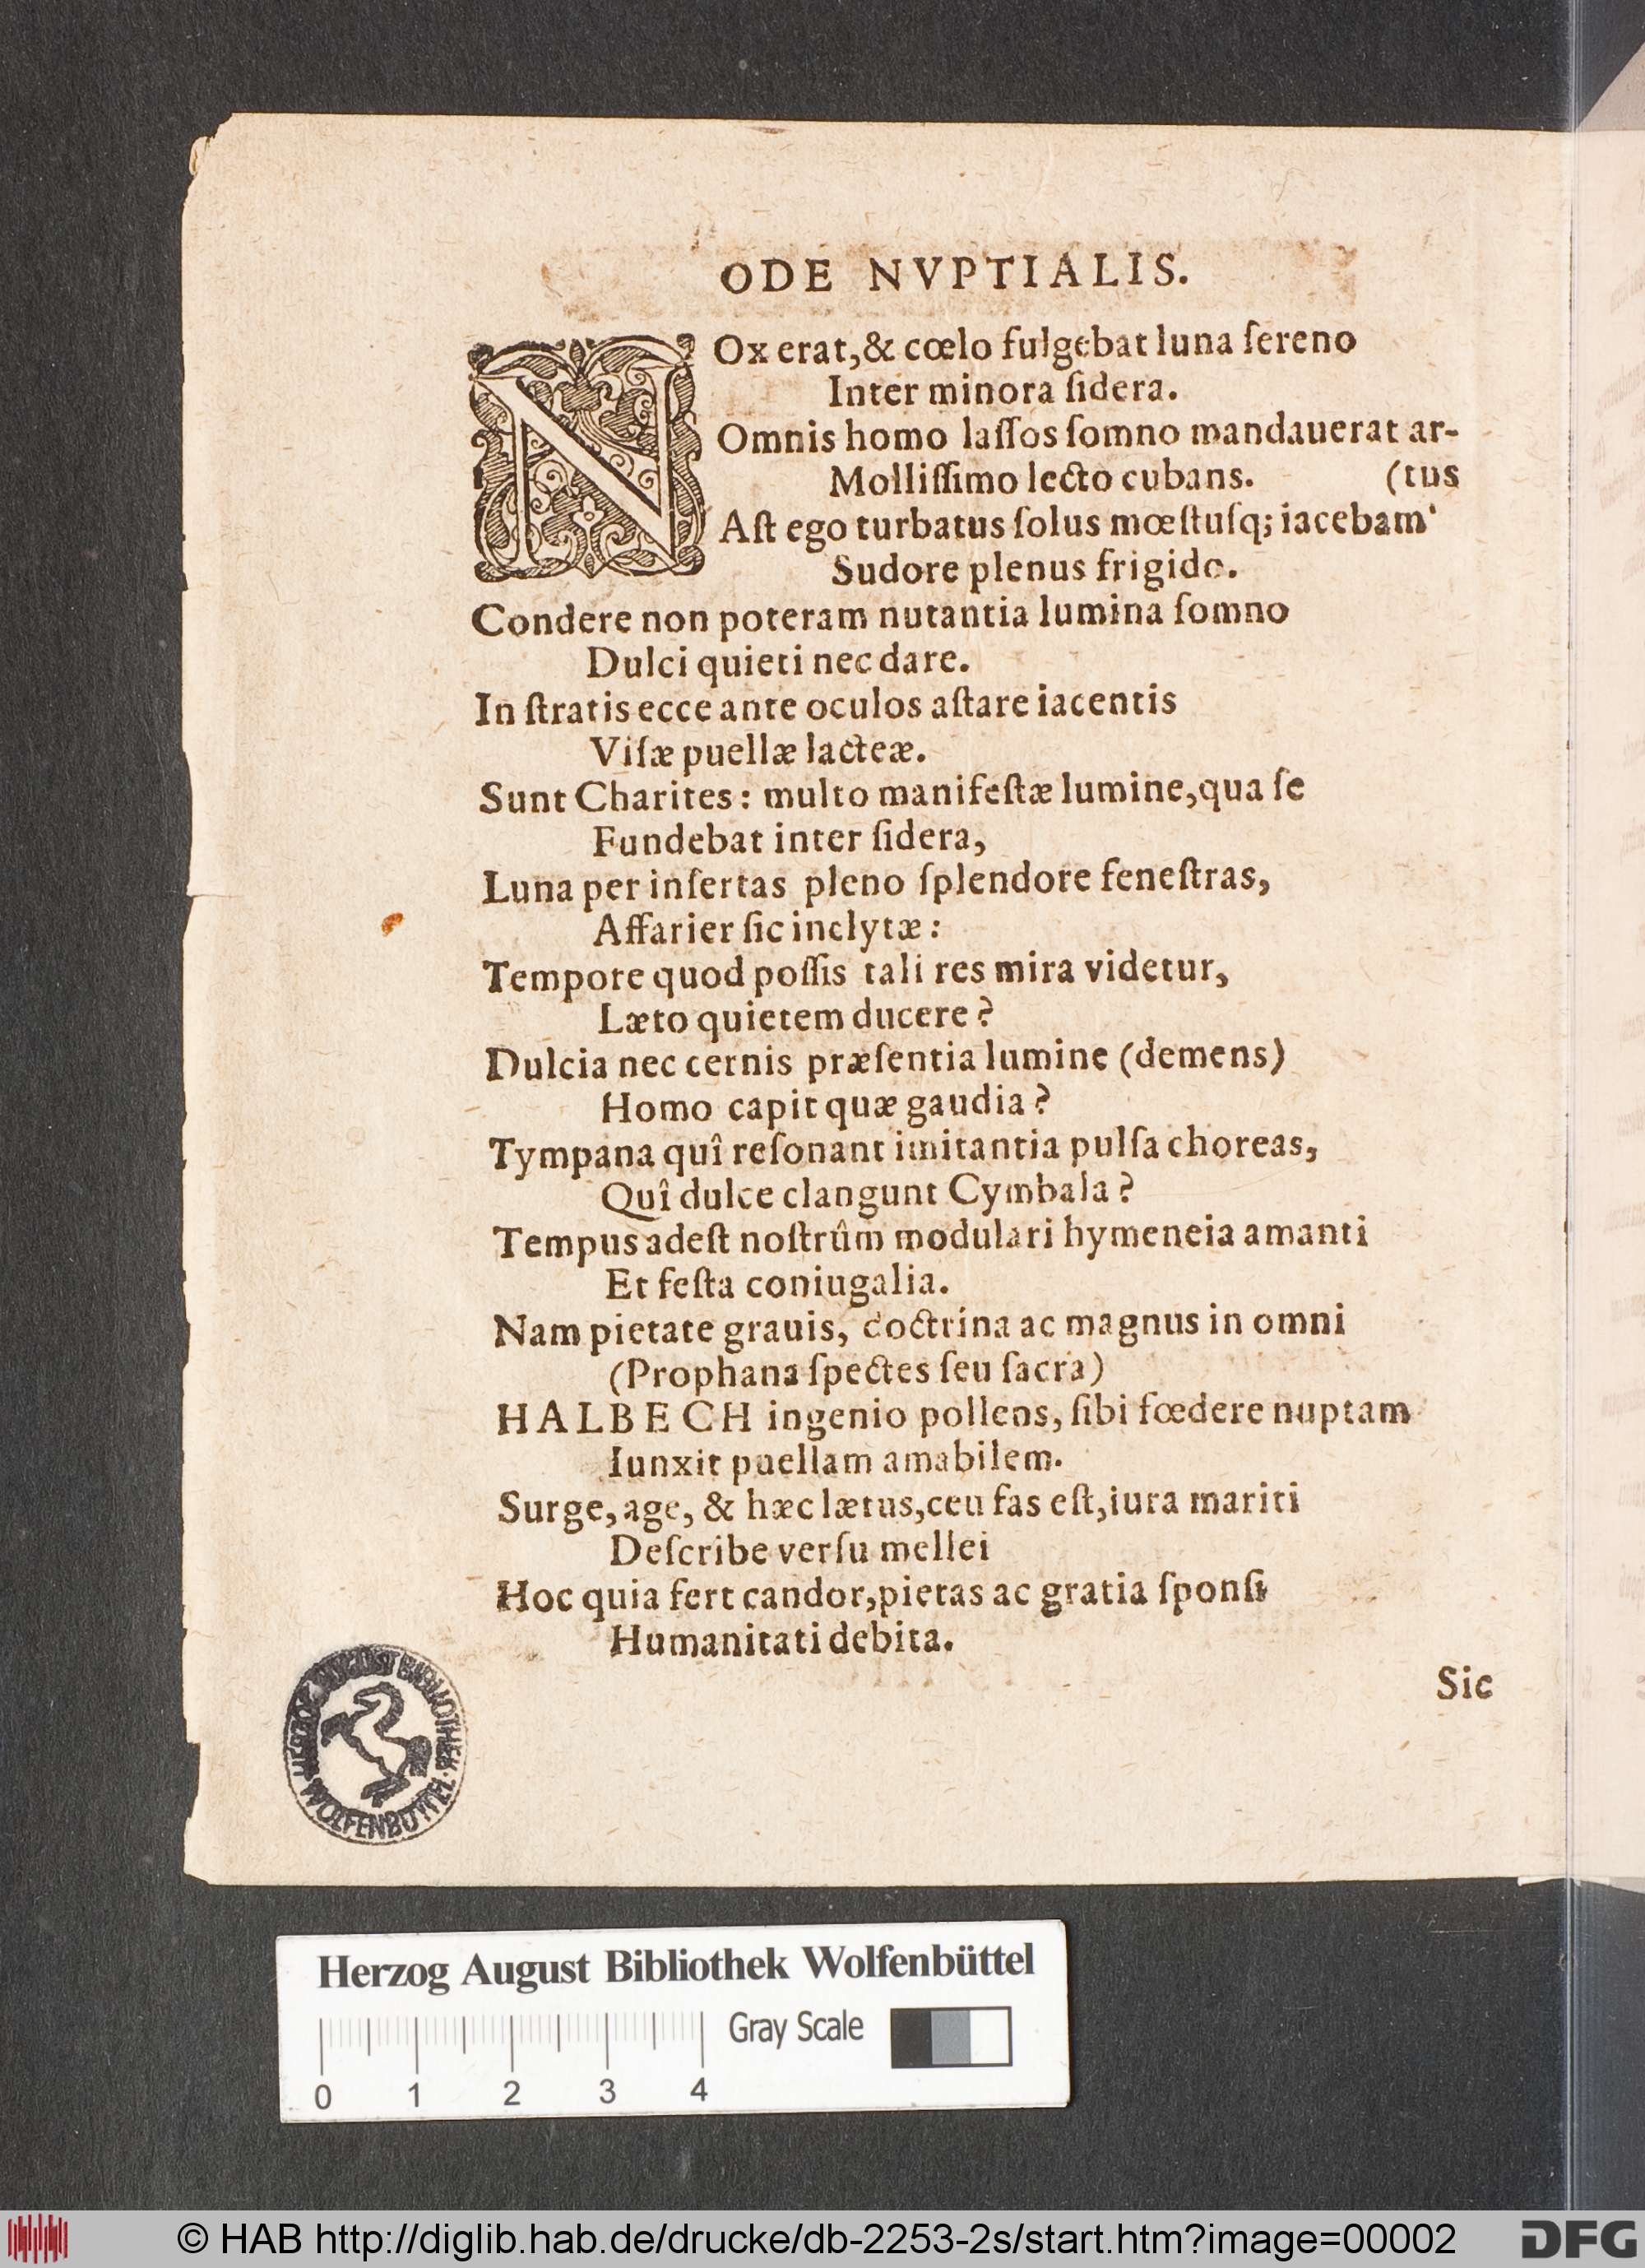 ODE NVPTIALIS.
NOx erat,& cœlo fulgebat luna ſereno
Inter minora ſidera.
Omnis homo laſſos ſomno mandauerat ar-
Molliſſimo lecto cubans. (tus
Aſt ego turbatus ſolus mœſtuſq; iacebam
Sudore plenus frigido.
Condere non poteram nutantia lumina ſomno
Dulci quieti nec dare.
In ſtratis ecce ante oculos aſtare iacentis
Viſæ puellæ lacteæ.
Sunt Charites: multo manifeſtæ lumine,qua ſe
Fundebat inter ſidera,
Luna per inſertas pleno ſplendore feneſtras,
Affarier ſic inclytæ:
Tempore quod poſſis tali res mira videtur,
Læto quietem ducere?
Dulcia nec cernis præſentia lumine (demens)
Homo capit quæ gaudia?
Tympana quî reſonant imitantia pulſa choreas,
Quî dulce clangunt Cymbala?
Tempus adeſt noſtrûm modulari hymeneia amanti
Et feſta coniugalia.
Nam pietate grauis, doctrina ac magnus in omni
(Prophana ſpectes ſeu ſacra)
HALBECH ingenio pollens, ſibi fœdere nuptam
Iunxit puellam amabilem.
Surge, age, & hæc lætus,ceu fas eſt,iura mariti
Deſcribe verſu mellei
Hoc quia fert candor,pietas ac gratia ſponſi
Humanitati debita.
Sic
HERZOG AUGUST BIBLIOTHEK · WOLFENBÜTTEL ·
Herzog August Bibliothek Wolfenbüttel
Gray Scale
0 1 2 3 4
© HAB http://diglib.hab.de/drucke/db-2253-2s/start.htm?image=00002
DFG